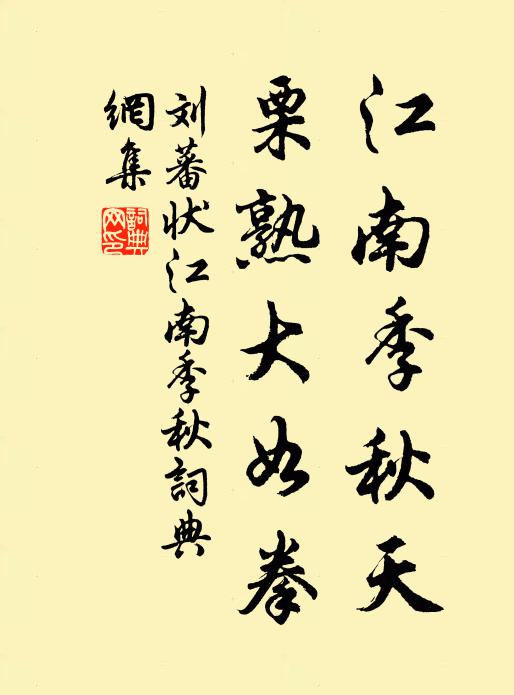 江南季秋天
栗熟大如拳
刘蕃状江南季秋詞典
網集
詞典
网印